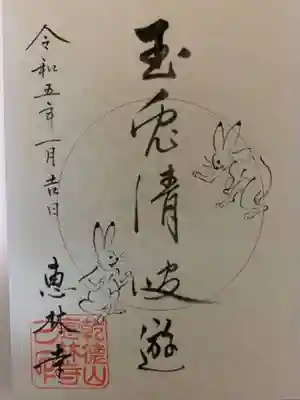 玉兎清波遊
令和五年一月吉日
恵林寺
乾徳山